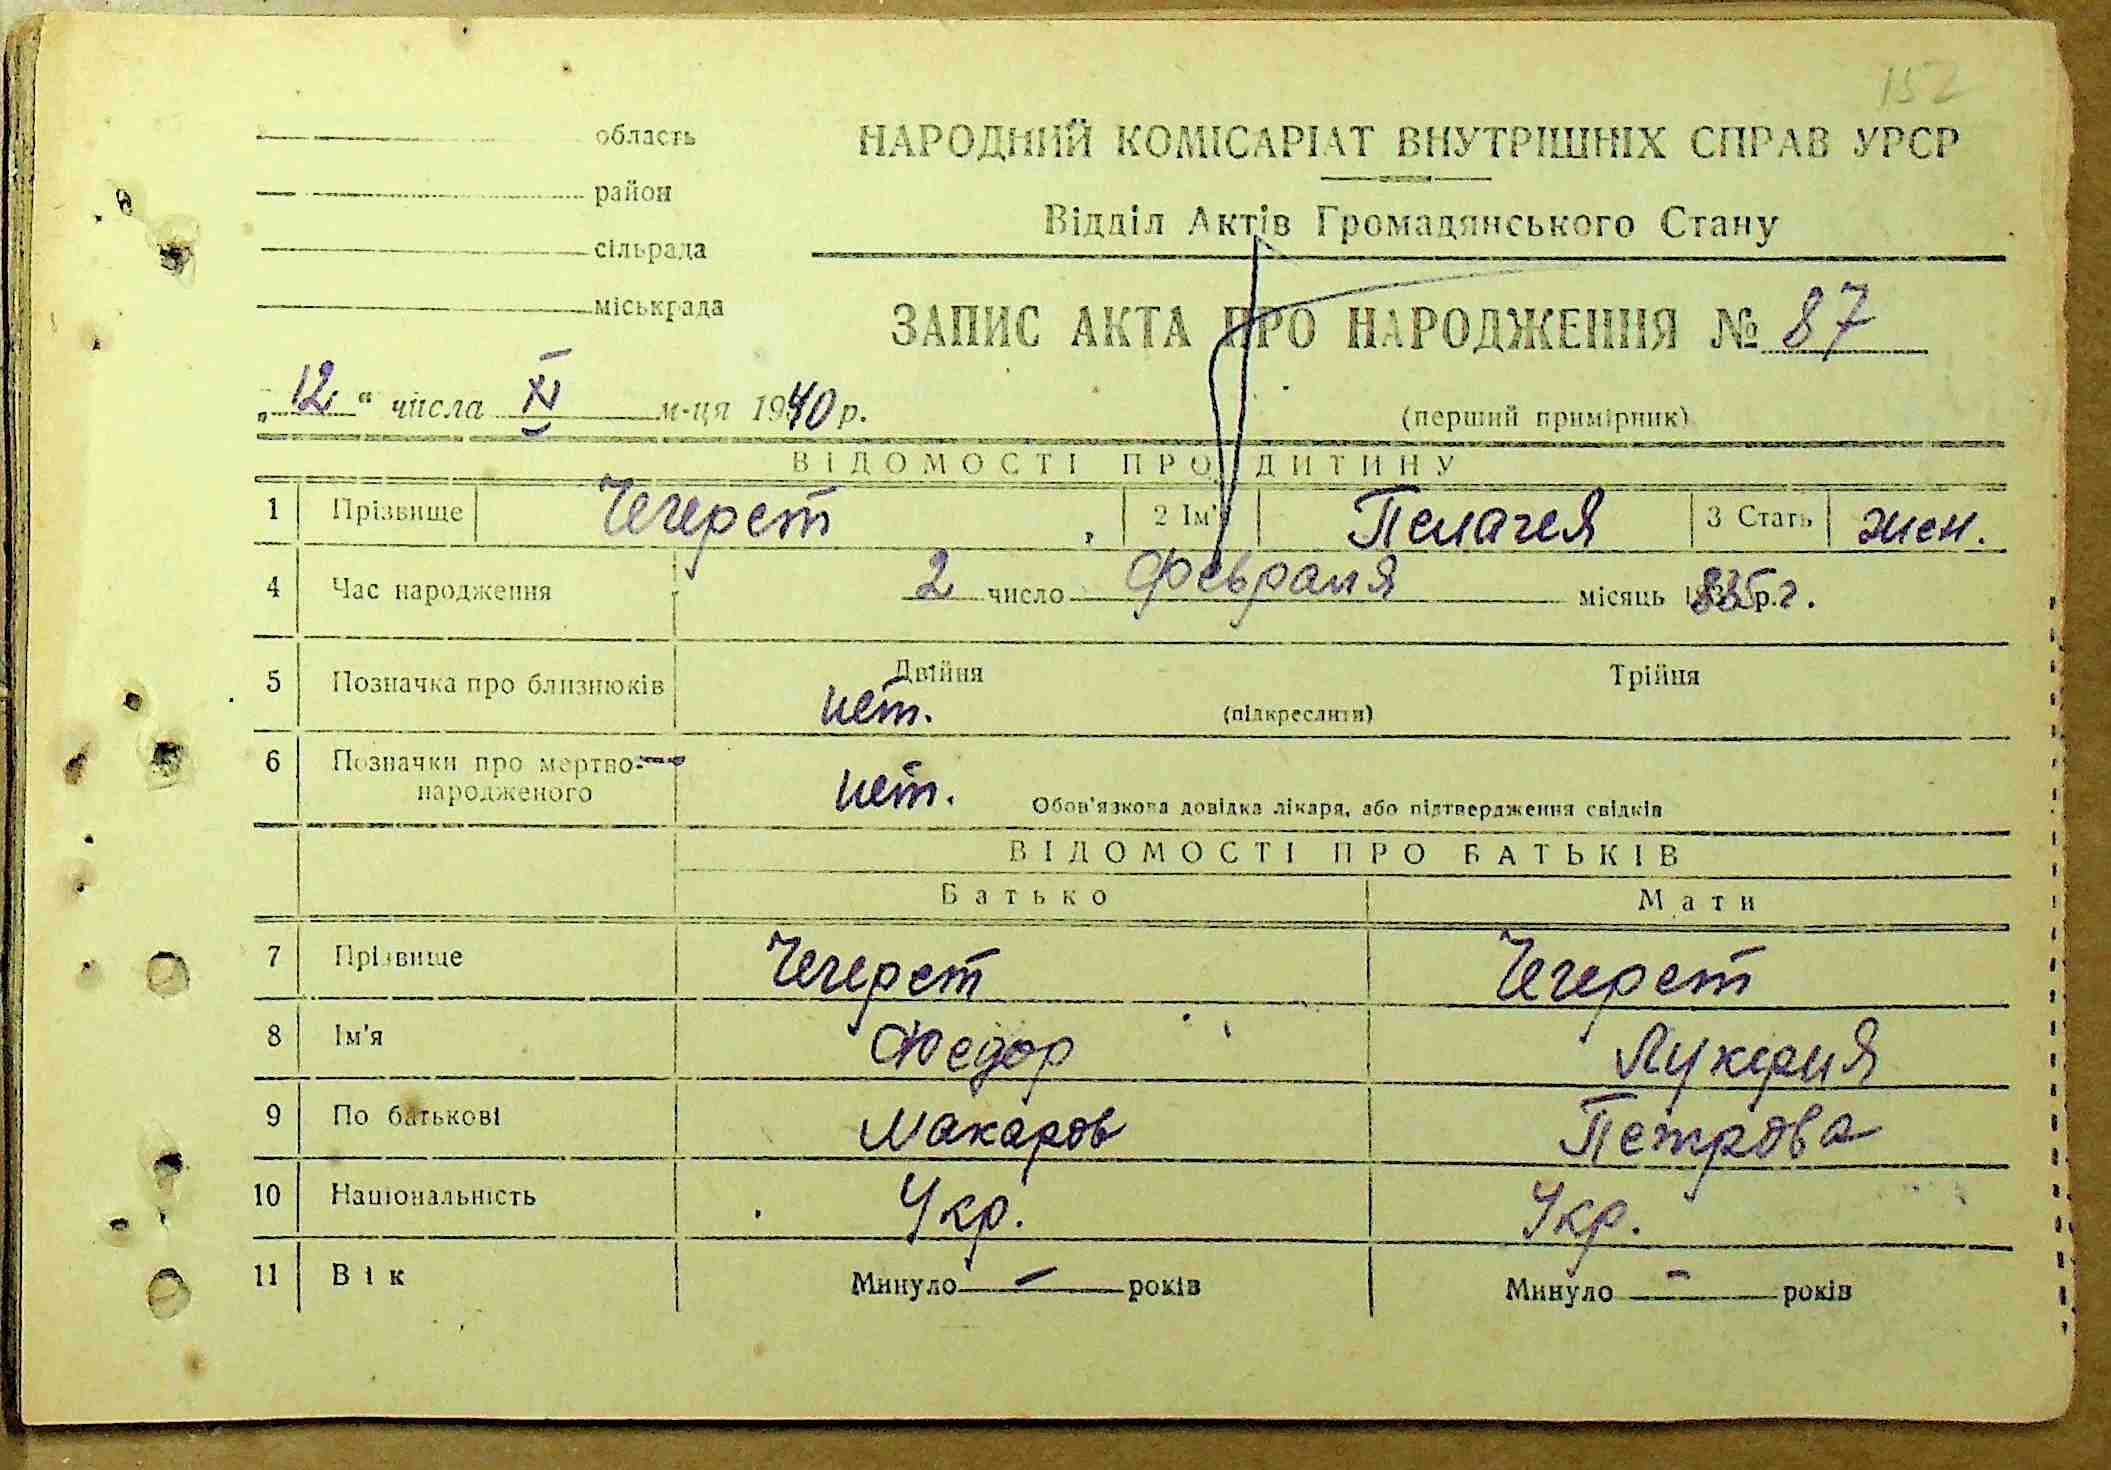 152
область
район
сільрада
міськрада
НАРОДНИЙ КОМІСАРІАТ ВНУТРІШНІХ СПРАВ УРСР
Відділ Актів Громадянського Стану
ЗАПИС АКТА ПРО НАРОДЖЕННЯ № 87
„12“ числа XI м-ця 1940 р.
(перший примірник)
ВІДОМОСТІ ПРО ДИТИНУ
1 Прізвище Чегерест, 2 Ім'я Пелагея 3 Стать жен.
4 Час народження 2 число Февраля місяць р. г.
5 Позначка про близнюків Двійня Трійня
нет. (підкреслити)
6 Позначки про мертво-
народженого нет. Обов'язкова довідка лікаря, або підтвердження свідків
ВІДОМОСТІ ПРО БАТЬКІВ
Батько Мати
7 Прізвище Чегерест Чегерест
8 Ім'я Федор Лукерия
9 По батькові Макаров Петрова
10 Національність Укр. Укр.
11 Вік Минуло — років Минуло — років